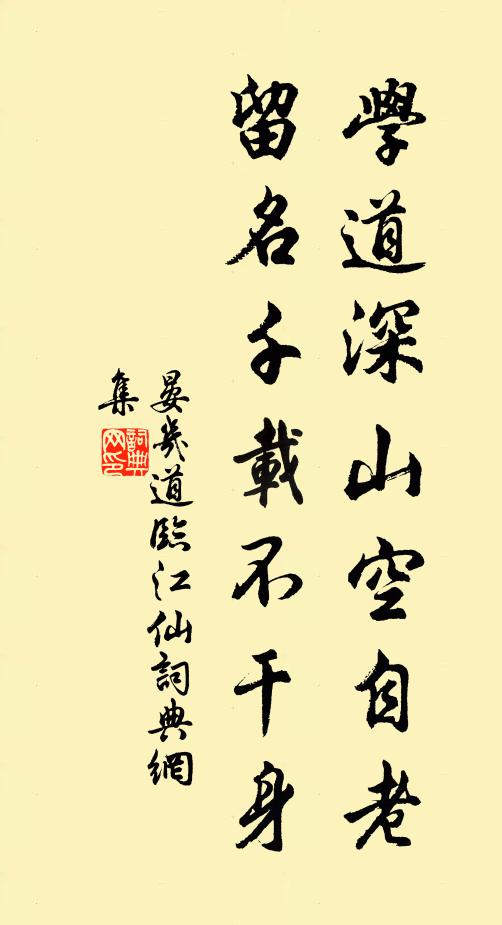 學道深山空自老
留名千載不干身
晏幾道臨江仙詞典網
集
詞典網印